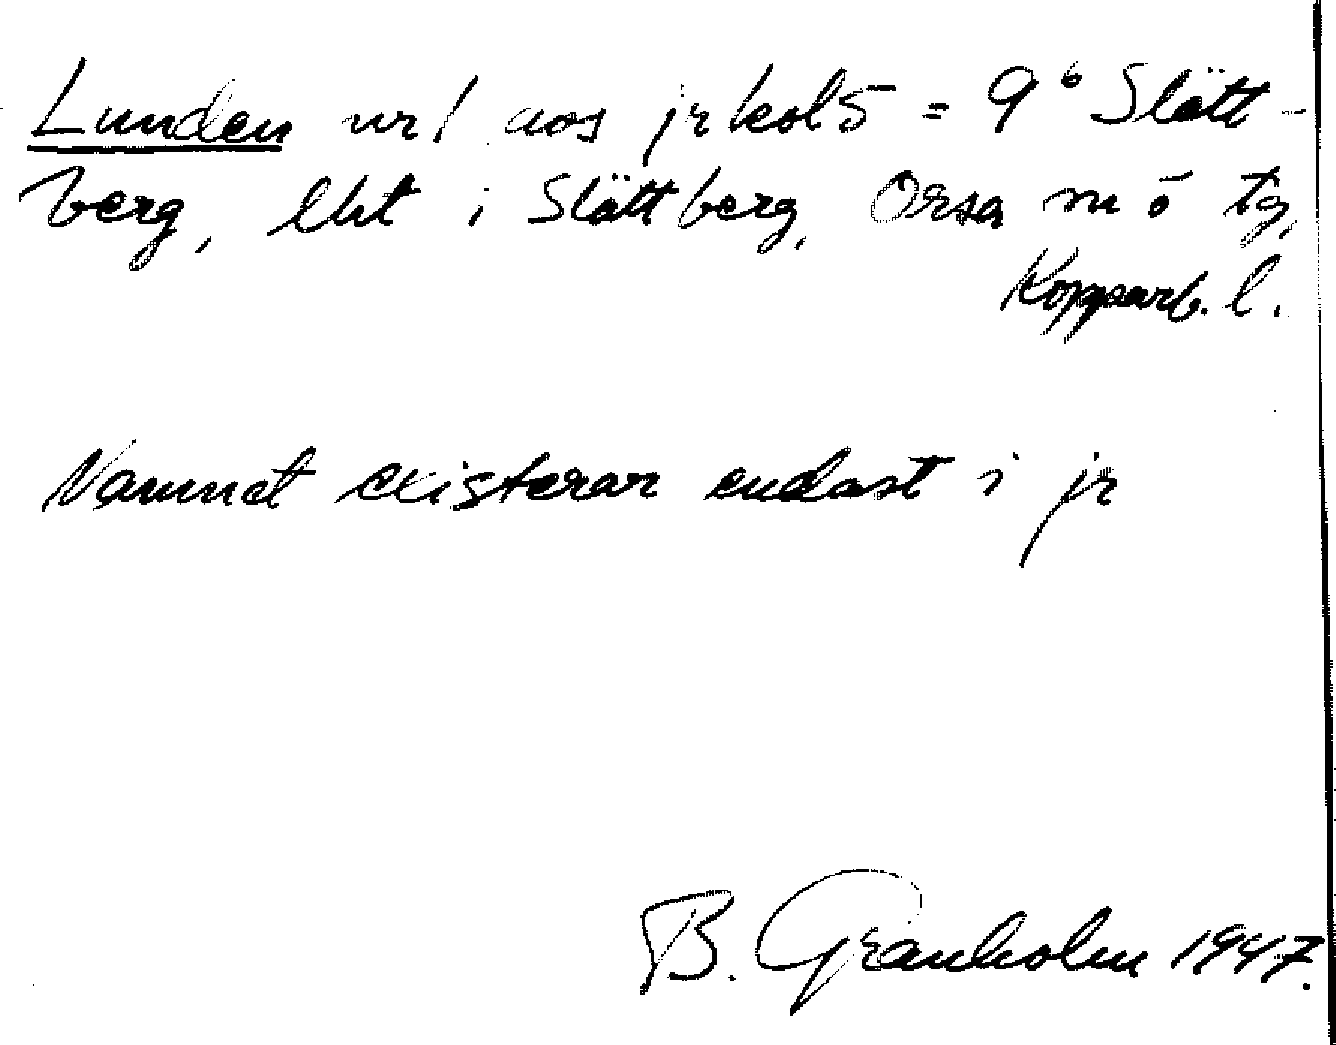 Lunden nr 1 aos jr kol 5 = 9⁶ Slätt-
berg, lht i Slättberg, Orsa m ö tg,
Kopparb. l.
Namnet existerar endast i jr
B. Granholm 1947.